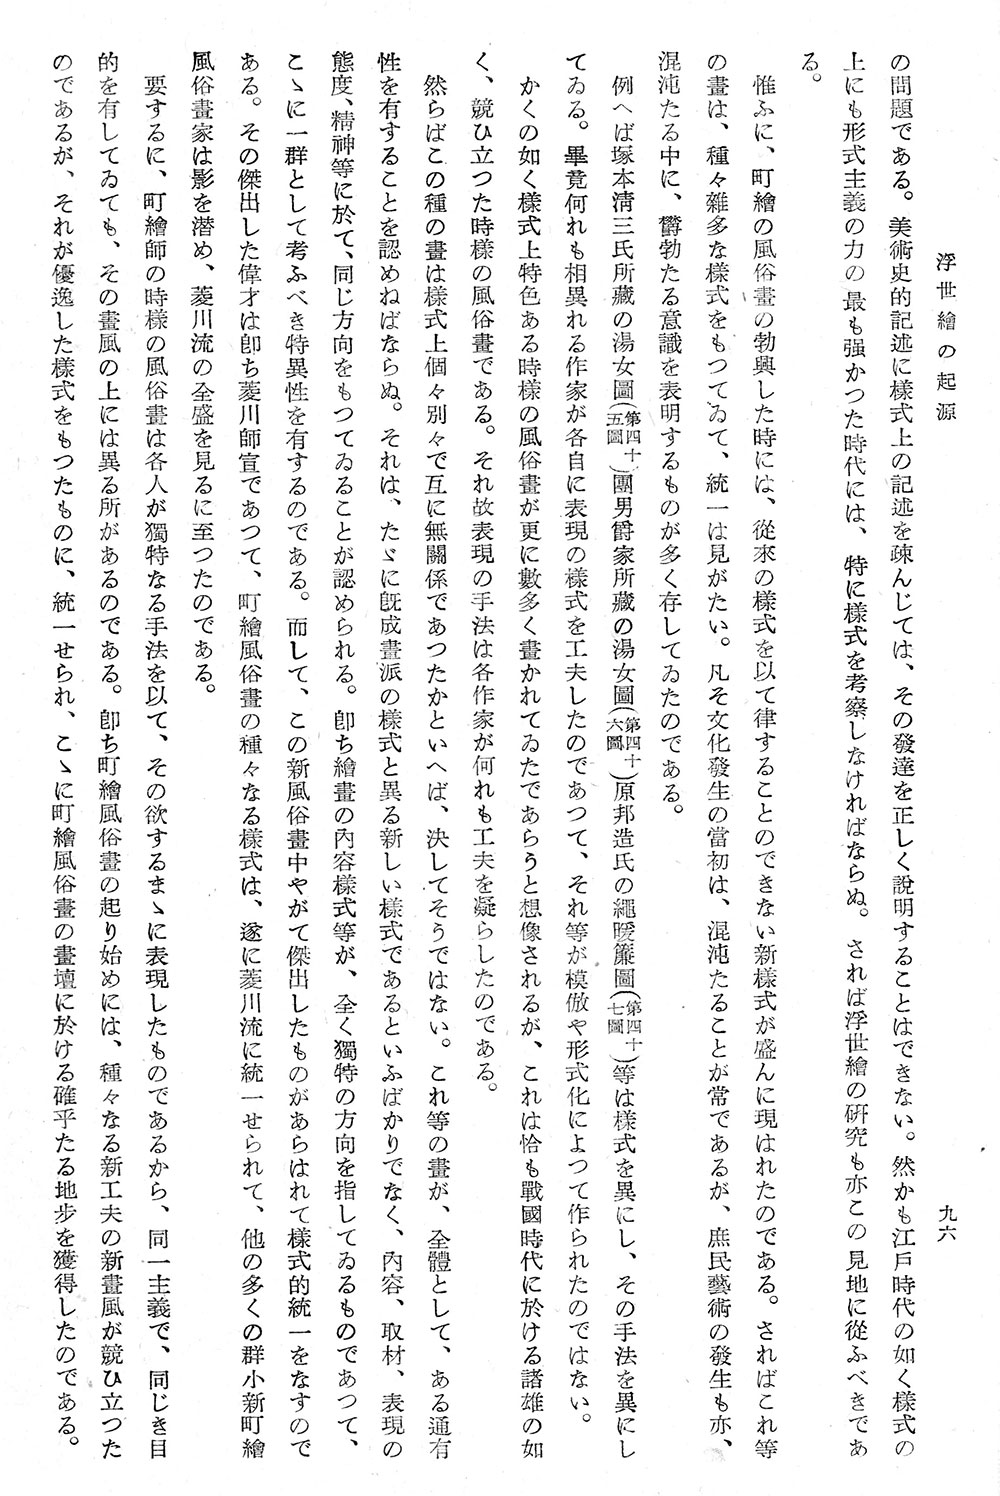 浮世繪の起源
九六
の問題である。美術史的記述に樣式上の記述を疎んじては、その發達を正しく說明することはできない。然かも江戶時代の如く樣式の
上にも形式主義の力の最も强かつた時代には、特に樣式を考察しなければならぬ。されば浮世繪の硏究も亦この見地に從ふべきであ
る。
惟ふに、町繪の風俗畫の勃興した時には、從來の樣式を以て律することのできない新樣式が盛んに現はれたのである。さればこれ等
の畫は、種々雜多な樣式をもつてゐて、統一は見がたい。凡そ文化發生の當初は、混沌たることが常であるが、庶民藝術の發生も亦、
混沌たる中に、欝勃たる意識を表明するものが多く存してゐたのである。
例へば塚本淸三氏所藏の湯女圖(第四十五圖)團男爵家所藏の湯女圖(第四十六圖)原邦造氏の繩暖簾圖(第四十七圖)等は樣式を異にし、その手法を異にし
てゐる。畢竟何れも相異れる作家が各自に表現の樣式を工夫したのであつて、それ等が模倣や形式化によつて作られたのではない。
かくの如く樣式上特色ある時樣の風俗畫が更に數多く畫かれてゐたであらうと想像されるが、これは恰も戰國時代に於ける諸雄の如
く、競ひ立つた時樣の風俗畫である。それ故表現の手法は各作家が何れも工夫を凝らしたのである。
然らばこの種の畫は樣式上個々別々で互に無關係であつたかといへば、決してそうではない。これ等の畫が、全體として、ある通有
性を有することを認めねばならぬ。それは、たゞに旣成畫派の樣式と異る新しい樣式であるといふばかりでなく、內容、取材、表現の
態度、精神等に於て、同じ方向をもつてゐることが認められる。卽ち繪畫の內容樣式等が、全く獨特の方向を指してゐるものであつて、
こゝに一群として考ふべき特異性を有するのである。而して、この新風俗畫中やがて傑出したものがあらはれて樣式的統一をなすので
ある。その傑出した偉才は卽ち菱川師宣であつて、町繪風俗畫の種々なる樣式は、遂に菱川流に統一せられて、他の多くの群小新町繪
風俗畫家は影を潛め、菱川流の全盛を見るに至つたのである。
要するに、町繪師の時樣の風俗畫は各人が獨特なる手法を以て、その欲するまゝに表現したものであるから、同一主義で、同じき目
的を有してゐても、その畫風の上には異る所があるのである。卽ち町繪風俗畫の起り始めには、種々なる新工夫の新畫風が競ひ立つた
のであるが、それが優逸した樣式をもつたものに、統一せられ、こゝに町繪風俗畫の畫壇に於ける確乎たる地步を獲得したのである。